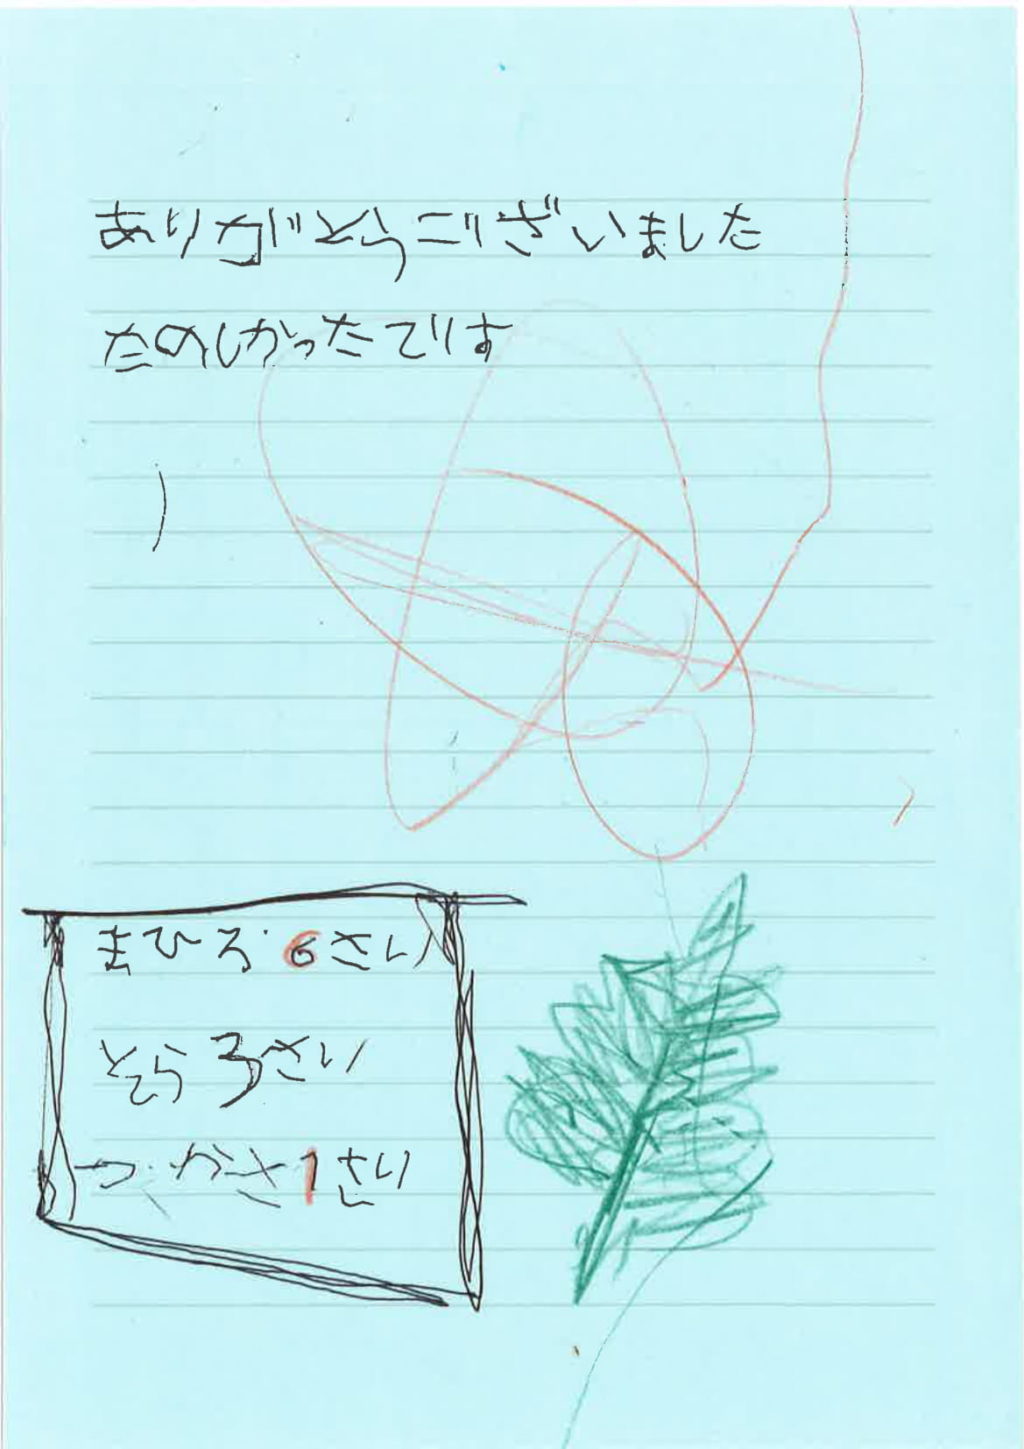 ありがとうございました
たのしかったでりす
まひろ 6さい
そら 3さい
つかさ 1さい